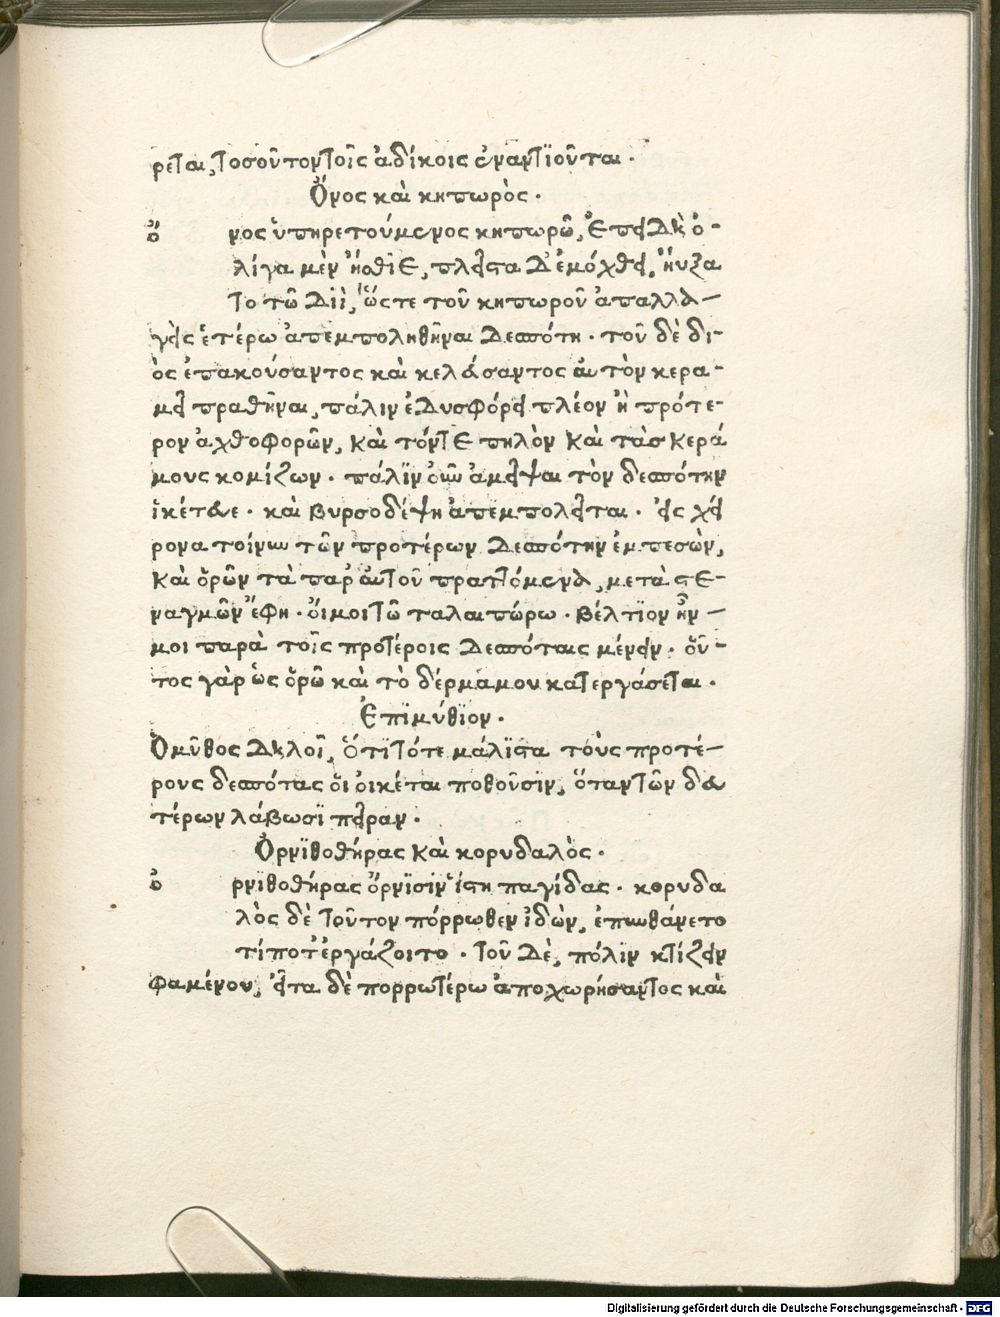 ρεται, τοσοῦτον τοῖς ἀδίκοις ἐναντϊοῦνται.
Ὄνος καὶ κηπωρὸς.
ὄ νος ὑπηρετούμενος κηπωρῶ, ἐπειδὴ ὀ-
λίγα μὲν ἤσθϊε, πλεῖστα δ'ἐμόχθει, ἤυξα
το τῶ Διὶ, ὥστε τοῦ κηπωροῦ ἀπαλλα-
γεὶς ἑτέρω ἀπεμποληθῆναι δεσπότη. τοῦ δὲ δι-
ὸς ἐπακούσαντος καὶ κελεύσαντος ἀυτὸν κερα-
μεῖ πραθῆναι, πάλιν ἐδυσφόρει πλέον ἢ πρότε-
ρον ἀχθοφορῶν, καὶ τόντε πηλὸν καὶ τὰσ κερά
μους κομίζων. πάλϊν οὖν ἀμεῖψαι τὸν δεσπότην
ἱκέτευε. καὶ βυρσοδέψη ἀπεμπολεῖται. εἰς χεί
ρονα τοίνυν τῶν προτέρων δεσπότην ἐμπεσὼν,
καὶ ὁρῶν τὰ παρ ἀυτοῦ πραττόμενα, μετὰ στε-
ναγμῶν ἔφη. ὄιμοι τῶ ταλαιπώρω. βέλτϊον ἦν -
μοι παρὰ τοῖς προτέροις δεσπόταις μένειν. οὗ-
τος γὰρ ὡς ὁρῶ καὶ τὸ δέρμαμου κατεργάσεται.
Ἐπϊμύθϊον.
Ὁμῦθος δηλοῖ, ὅτϊ τότε μάλϊστα τοὺς προτέ-
ρους δεσπότας ὅι ὀικέται ποθοῦσϊν, ὅταν τῶν δευ
τέρων λάβωσϊ πεῖραν.
Ὀρνϊθοθήρας καὶ κορυδαλὸς.
ὀ ρνιθοθήρας ὄρνϊσϊν ἵστη παγίδας. κορυδα
λὸς δὲ τοῦτον πόρρωθεν ἰδὼν, ἐπυνθάνετο
τί ποτ' ἐργάζοιτο. τοῦ δὲ, πόλϊν κτίζειν
φαμένου, εἶτα δὲ πορρωτέρω ἀποχωρήσαντος καὶ
Digitalisierung gefördert durch die Deutsche Forschungsgemeinschaft - DFG